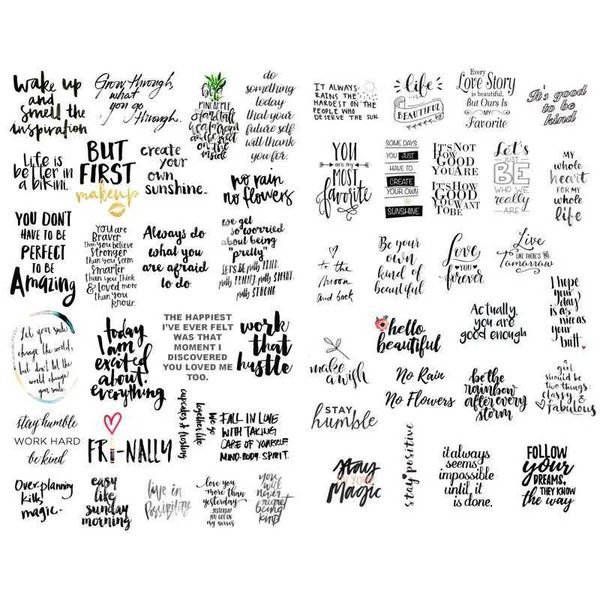 wake up
and
smell the
inspiration
Grow through
what
you go
through.
be
PINEAPPLE
stand tall
wear a crown
and be
sweet
on the
inside
do
something
today
that your
future self
will
thank
you for.
Life is
better in
a bikini.
BUT
FIRST
makeup
create
your
own
sunshine.
no rain
no flowers
YOU DON'T
HAVE TO BE
PERFECT
TO BE
Amazing
You are
Braver
than you believe
Stronger
than you seem
Smarter
than you think
& Loved
more than
you know.
Always do
what you
are afraid
to do
we get
so worried
about being
"pretty"
LET'S BE pretty KIND.
pretty FUNNY. pretty SMART.
pretty STRONG
Let your smile
change the world,
but don't let the
world change
your smile
today
i am
excited
about
everything
THE HAPPIEST
I'VE EVER FELT
WAS THAT
MOMENT I
DISCOVERED
YOU LOVED ME
TOO.
work
that
hustle
stay humble
WORK HARD
be kind
FRI-NALLY
We go
together like
cupcakes & frosting
FALL IN LOVE
WITH TAKING
CARE OF YOURSELF
MIND. BODY. SPIRIT.
Over-planning
kills
magic.
easy
like
sunday
morning
love in
possibility
love you
more than
yesterday
YESTERDAY
YOU GOT ON
MY NERVES
you
will
never
regret
being
kind
IT ALWAYS
RAINS THE
HARDEST ON THE
PEOPLE WHO
DESERVE THE SUN.
life
is
BEAUTIFUL
Every
Love Story
is beautiful,
But Ours Is
My
Favorite
It's good
to be
kind
YOU
ARE MY
MOST
favorite
SOME DAYS
YOU JUST
HAVE TO
CREATE
YOUR OWN
SUNSHINE
IT'S NOT
HOW GOOD
YOU ARE
IT'S HOW
GOOD
YOU WANT
TO BE
Let's
JUST
BE
WHO WE
really
ARE
MY
whole
heart
FOR MY
whole
life
to the
moon
and back
Be your
own
kind of
beautiful
Love
you
forever
Live
LIKE THERE'S NO
Tomorrow
I hope
your
day
is as
nice as
your
butt.
make
a wish
hello
beautiful
Actually,
you are
good enough
No Rain
No Flowers
be the
rainbow
after every
storm
a
girl
should be
two things
classy &
fabulous
STAY
humble
stay
Magic
stay positive
it always
seems
impossible
until it
is done.
FOLLOW
your
DREAMS,
THEY KNOW
the way